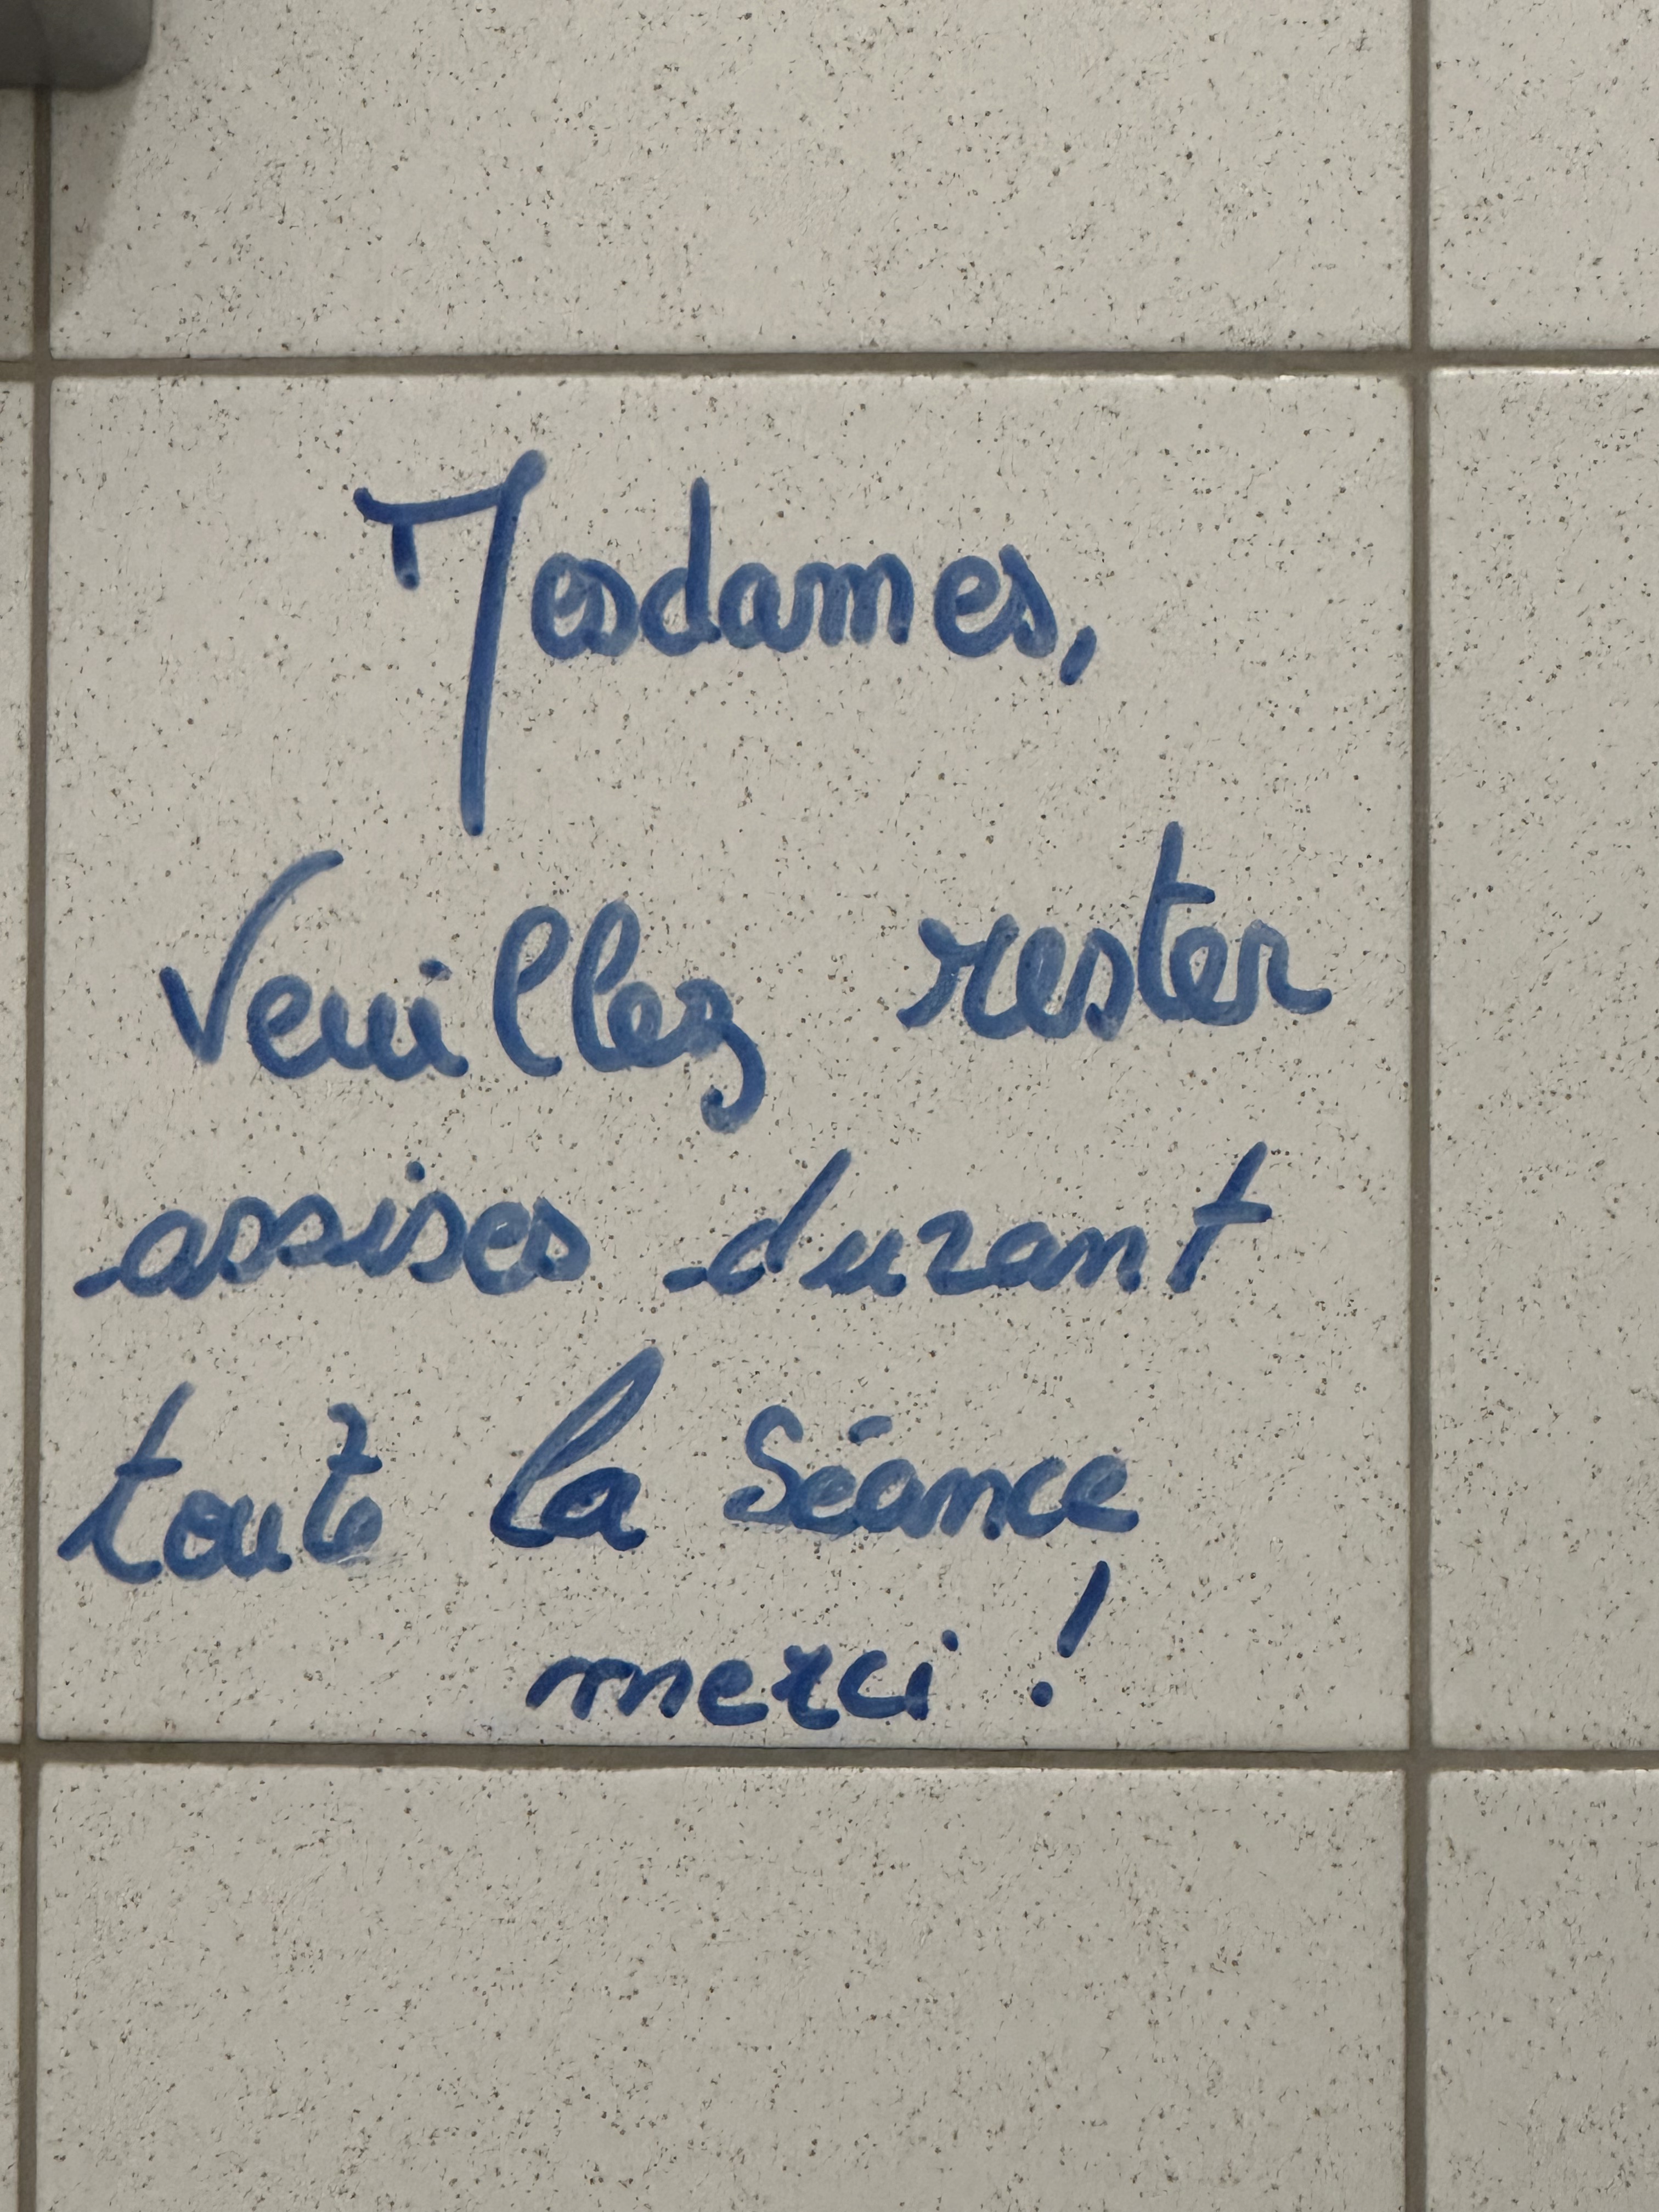 Mesdames,
Veuillez rester
assises durant
toute la Séance
merci !